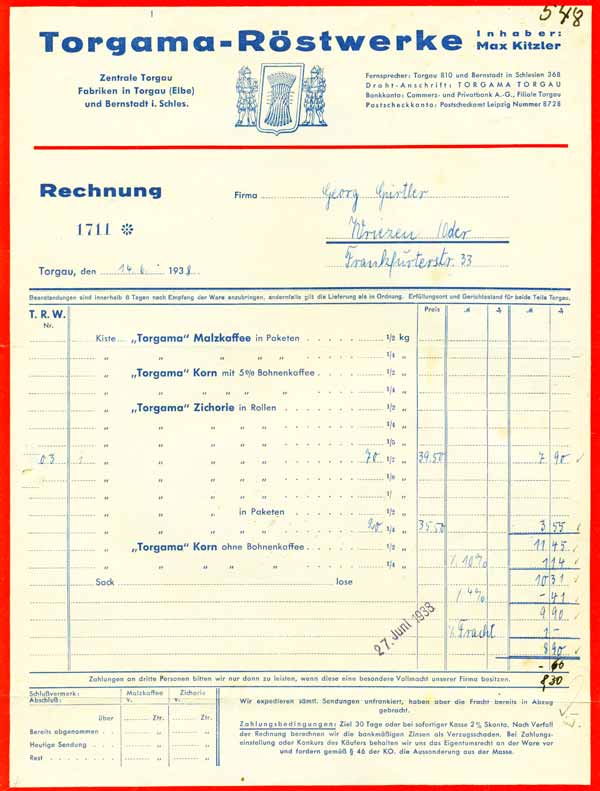 548
Torgama-Röstwerke
Inhaber:
Max Kitzler
Zentrale Torgau
Fabriken in Torgau (Elbe)
und Bernstadt i. Schles.
Fernsprecher: Torgau 810 und Bernstadt in Schlesien 368
Draht-Anschrift: TORGAMA TORGAU
Bankkonto: Commerz- und Privatbank A.-G., Filiale Torgau
Postscheckkonto: Postscheckamt Leipzig Nummer 8728
Rechnung
Firma Georg Gürtler
1711 *
Wriezen/Oder
Frankfurterstr. 33
Torgau, den 14. 6. 1938
Beanstandungen sind innerhalb 8 Tagen nach Empfang der Ware anzubringen, andernfalls gilt die Lieferung als in Ordnung. Erfüllungsort und Gerichtsstand für beide Teile Torgau.
T. R. W. Nr. Preis
Kiste „Torgama" Malzkaffee in Paketen 1/2 kg
„ „ „ „ „ 1/4 „
„ „Torgama" Korn mit 5% Bohnenkaffee 1/2 „
„ „ „ „ „ „ 1/4 „
„ „Torgama" Zichorie in Rollen 1/2 „
„ „ „ „ „ 1/4 „
„ „ „ „ „ 1/5 „
03 „ „ „ „ „ 70 1/2 „ 39.50 7 90
„ „ „ „ „
„ „ „ „ „
„ „ „ in Paketen 1/2 „
„ „ „ „ „ 20 1/4 „ 35.50 3 55
„ „Torgama" Korn ohne Bohnenkaffee 1/2 „ 11 45
„ „ „ „ „ 1/4 „ 10% 1 14
Sack lose 10 31
4% - 41
9 90
27. Juni 1938
Fracht 1 -
8 90
- 60
8 30
Zahlungen an dritte Personen bitten wir nur dann zu leisten, wenn diese eine besondere Vollmacht unserer Firma besitzen.
Schlußvermerk: Malzkaffee Zichorie
Abschluß: v. v.
über Ztr. Ztr.
Bereits abgenommen Ztr. Ztr.
Heutige Sendung „ „
Rest „ „
Wir expedieren sämtl. Sendungen unfrankiert, haben aber die Fracht bereits in Abzug
gebracht.
Zahlungsbedingungen: Ziel 30 Tage oder bei sofortiger Kasse 2% Skonto. Nach Verfall
der Rechnung berechnen wir die bankmäßigen Zinsen als Verzugsschaden. Bei Zahlungs-
einstellung oder Konkurs des Käufers behalten wir uns das Eigentumsrecht an der Ware vor
und fordern gemäß § 46 der KO. die Aussonderung aus der Masse.